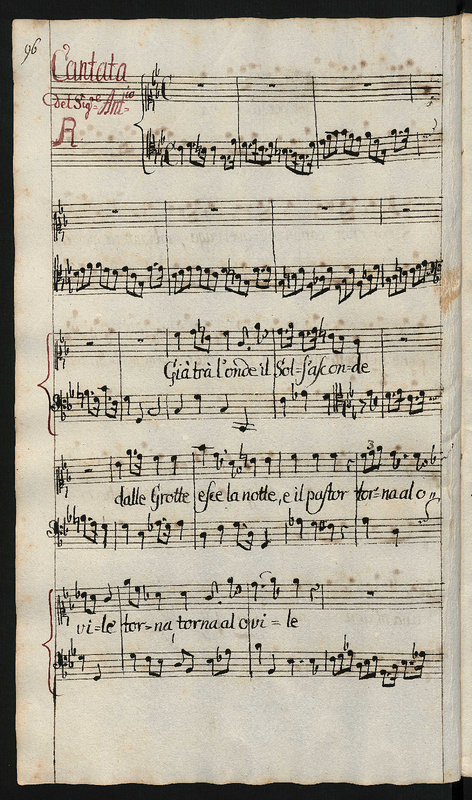 96
Cantata
del Sig.e Ant.io
A
Già trà l'onde il Sol=s'ascon=de
dalle Grotte esce la notte, e il pastor tor=na al o
3
vi=le tor=na, torna al ovi=le